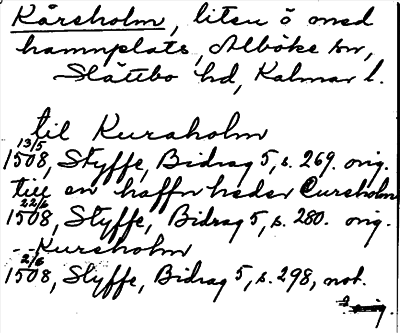 Kårsholm, liten ö med
hamnplats, Alböke sn,
Slättbo hd, Kalmar l.
til Kursholm
13/5
1508, Styffe, Bidrag 5, s. 269. orig.
till en haffn heder Cursholm
22/6
1508, Styffe, Bidrag 5, s. 280. orig.
-- Kursholm
2/6
1508, Styffe, Bidrag 5, s. 298, not.